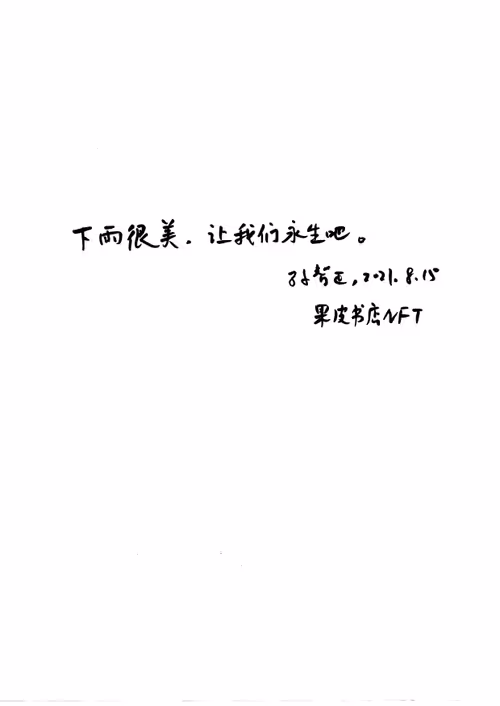 下雨很美，让我们永生吧。
孙智正，2021.8.15
果皮书店NFT